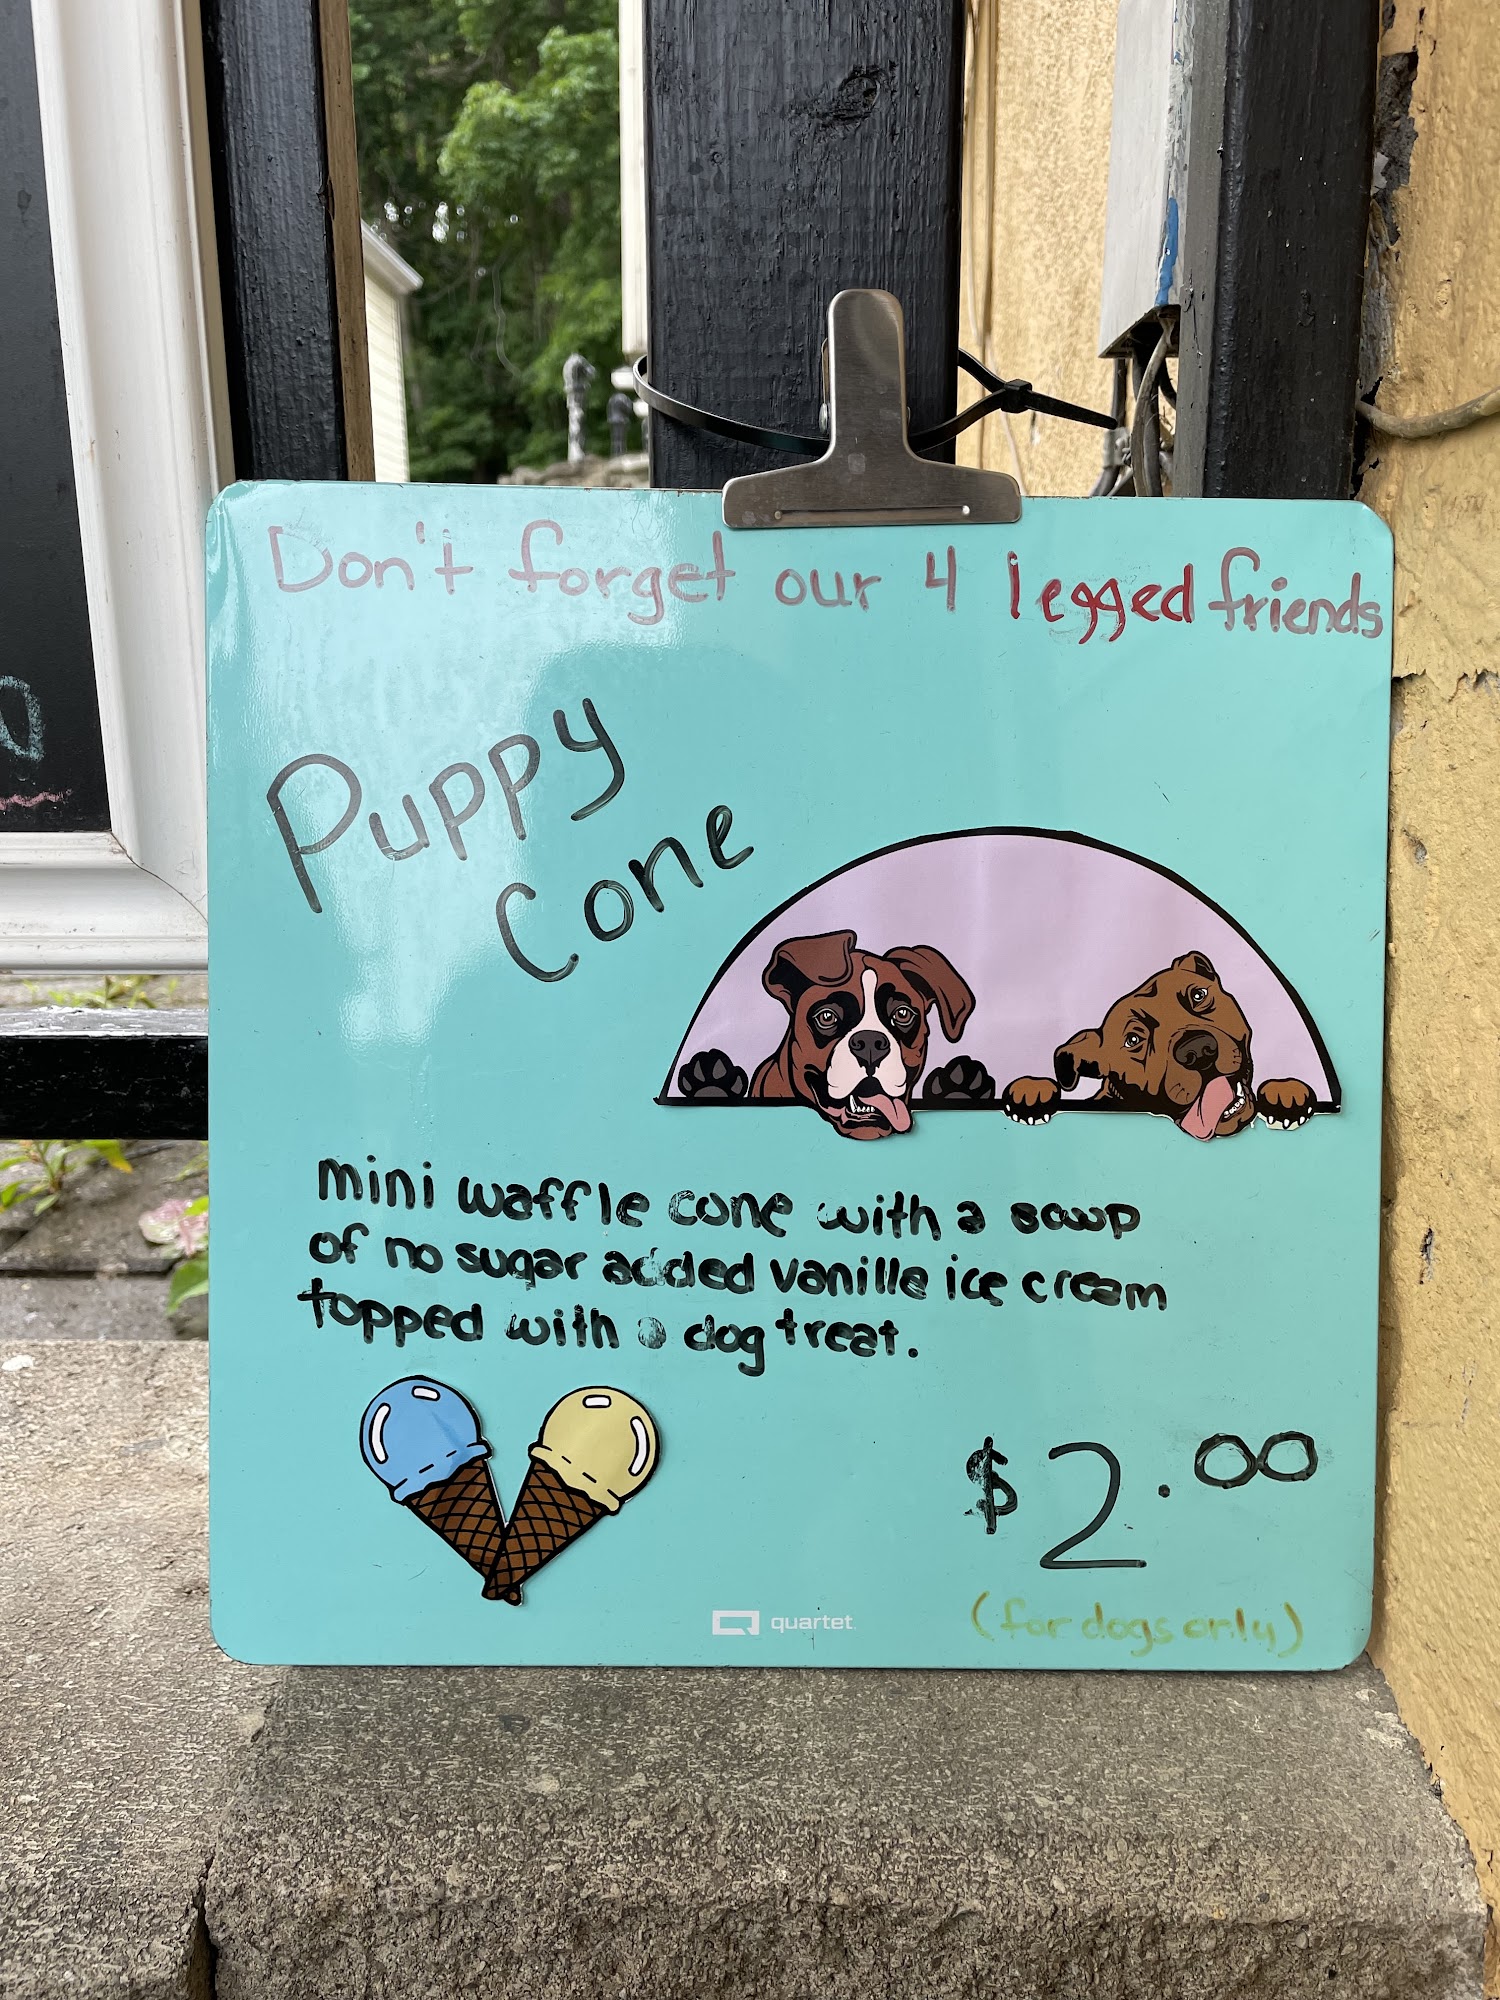 Don't forget our 4 legged friends
Puppy
Cone
mini waffle cone with a scoop
of no sugar added vanille ice cream
topped with a dog treat.
$2.00
(for dogs only)
quartet